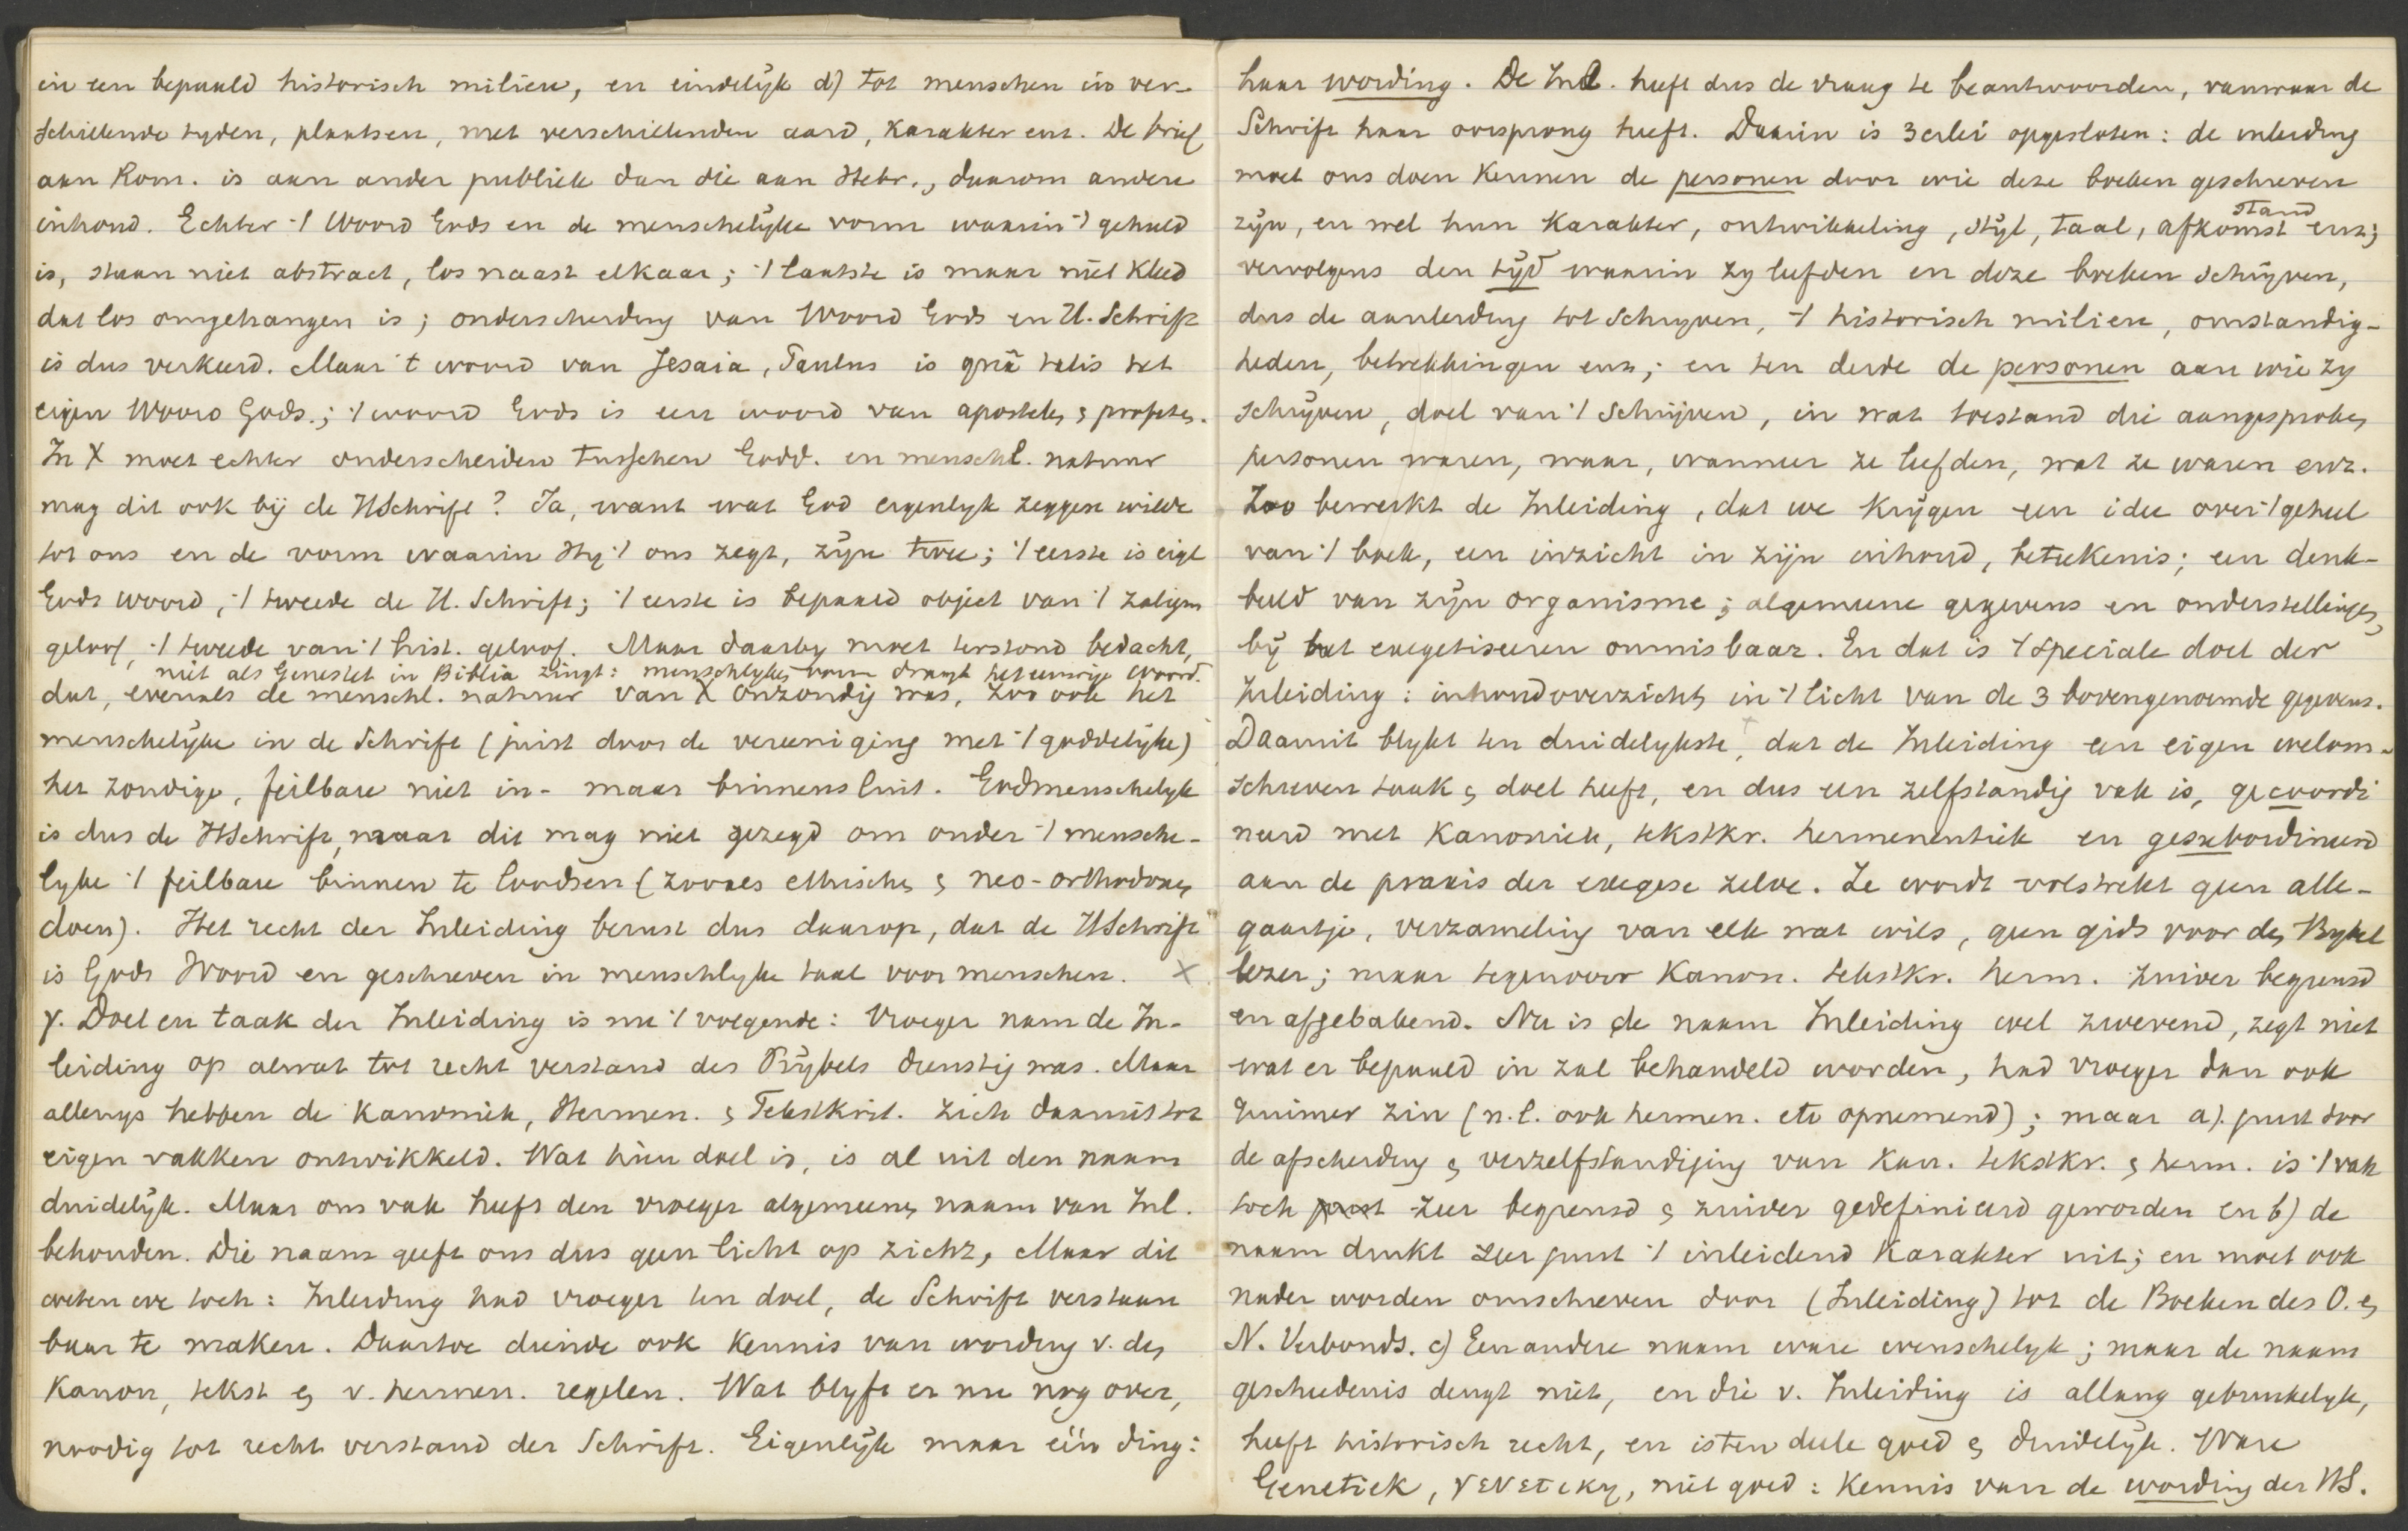 in een bepaald historisch milieu, en eindelijk d) tot menschen in ver-
schillende tyden, plaatsen, met verschillenden aard, karakter enz. De brief
aan Rom. is aan ander publiek dan die aan Hebr., daarom andere
inhoud. Echter 't Woord Gods en de menschelijke vorm waarin 't gehuld
is, staan niet abstract, los naast elkaar; 't laatste is maar niet kleed
dat los omgehangen is; onderscheiding van Woord Gods en H. Schrift
is dus verkeerd. Maar 't woord van Jesaia, Paulus is quâ talis het
eigen Woord Gods.; 't woord Gods is een woord van apostelen & profeten.
In X moet echter onderscheiden tusschen Godd. en menschl. natuur
mag dit ook bij de HSchrift? Ja, want wat God eigenlyk zeggen wilde
tot ons en de vorm waarin Hy 't ons zegt, zijn twee; 't eerste is eigl
Gods woord, 't tweede de H. Schrift; 't eerste is bepaald object van 't zaligm
geloof, 't tweede van 't hist. geloof. Maar daarby moet terstond bedacht,
niet als Genestet in Biblia zingt: menschlyken vorm draagt het eeuwige woord.
dat, evenals de menschl. natuur van X onzondig was, zoo ook het
menschelijke in de Schrift (juist door de vereeniging met 't goddelijke)
het zondige, feilbare niet in- maar binnensluit. Godmenschelyk
is dus de HSchrift, maar dit mag niet gezegd om onder 't mensche-
lyke 't feilbare binnen te loodsen (zooals ethischen & neo-orthodoxen
doen). Het recht der Inleiding berust dus daarop, dat de HSchrift
is Gods Woord en geschreven in menschlyke taal voor menschen. X
γ. Doel en taak der Inleiding is nu 't volgende: Vroeger nam de In-
leiding op alwat tot recht verstand des Bijbels dienstig was. Maar
allengs hebben de Kanoniek, Hermen. & Tekstkrit. zich daaruit tot
eigen vakken ontwikkeld. Wat hùn doel is, is al uit den naam
duidelijk. Maar ons vak heeft den vroeger algemeenen naam van Inl.
behouden. Die naam geeft ons dus geen licht op zichz, Maar dit
weten we toch: Inleiding had vroeger ten doel, de Schrift verstaan
baar te maken. Daartoe diende ook kennis van wording v. den
Kanon, tekst en v. hermen. regelen. Wat blyft er nu nog over,
noodig tot recht verstand der Schrift. Eigenlijk maar één ding:
haar wording. De Inl. heeft dus de vraag te beantwoorden, vanwaar de
Schrift haar oorsprong heeft. Daarin is 3erlei opgesloten: de inleiding
moet ons doen kennen de personen door wie deze boeken geschreven
zijn, en wel hun karakter, ontwikkeling, stijl, taal, afkomst stand enz;
vervolgens den tijd waarin zy leefden en deze boeken schrijven,
dus de aanleiding tot schryven, 't historisch milieu, omstandig-
heden, betrekkingen enz; en ten derde de personen aan wie zy
schrijven, doel van 't schrijven, in wat toestand die aangesproken
personen waren, waar, wanneer ze leefden, wat ze waren enz.
Zoo bewerkt de Inleiding, dat we krijgen een idee over 't geheel
van 't boek, een inzicht in zijn inhoud, beteekenis; een denk-
beeld van zijn organisme; algemeene gegevens en onderstellingen,
bij het exegetiseeren onmisbaar. En dat is 't speciale doel der
Inleiding: inhoudsoverzicht in 't licht van de 3 bovengenoemde gegevens.
Daaruit blykt ten duidelykste, dat de Inleiding een eigen welom-
schreven taak & doel heeft, en dus een zelfstandig vak is, gecoordi
neerd met Kanoniek, tekstkr. hermeneutiek en gesubordineerd
aan de praxis der exegese zelve. Ze wordt volstrekt geen alle-
gaartje, verzameling van elk wat wils, geen gids voor den Bybel
lezer; maar tegenover Kanon. tekstkr. herm. zuiver begrensd
en afgebakend. Nu is de naam Inleiding wel zwevend, zegt niet
wat er bepaald in zal behandeld worden, had vroeger dan ook
ruimer zin (n.l. ook hermen. etc opnemend); maar a). juist door
de afscheiding & verzelfstandiging van Kan. tekstkr. & herm. is 't vak
toch juist zeer begrensd & zuiver gedefinieerd geworden en b) de
naam drukt zeer juist 't inleidend karakter uit; en moet ook
nader worden omschreven door (Inleiding) tot de Boeken des O. en
N. Verbonds. c) Een andere naam ware wenschelyk; maar de naam
geschiedenis deugt niet, en die v. Inleiding is allang gebruikelyk,
heeft historisch recht, en is ten deele goed & duidelijk. Ware
Genetiek, γενετικη, niet goed: kennis van de wording der HS.